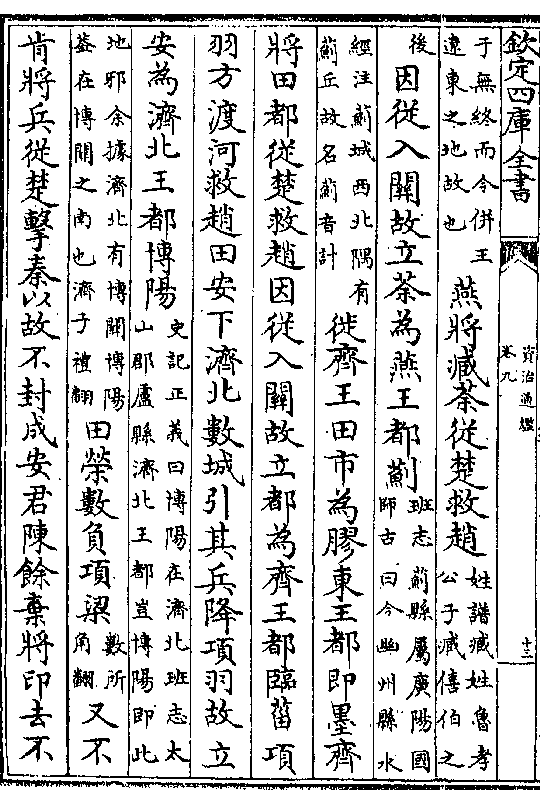 欽定四庫全書
資治通鑑
卷九
十三
于無終而今併王
遼東之地故也
燕將臧荼從楚救趙
姓譜臧姓魯孝
公子臧僖伯之
後
因從入關故立荼為燕王都薊
班志薊縣屬廣陽國
師古曰今幽州縣水
經注薊城西北隅有
薊丘故名薊音計
徙齊王田市為膠東王都即墨齊
將田都從楚救趙因從入關故立都為齊王都臨菑項
羽方渡河救趙田安下濟北數城引其兵降項羽故立
安為濟北王都博陽
史記正義曰博陽在濟北班志太
山郡盧縣濟北王都豈博陽即此
地邪余據濟北有博關博陽
葢在博關之南也濟子禮翻
田榮數負項梁
數所
角翻
又不
肯將兵從楚擊秦以故不封成安君陳餘棄將印去不